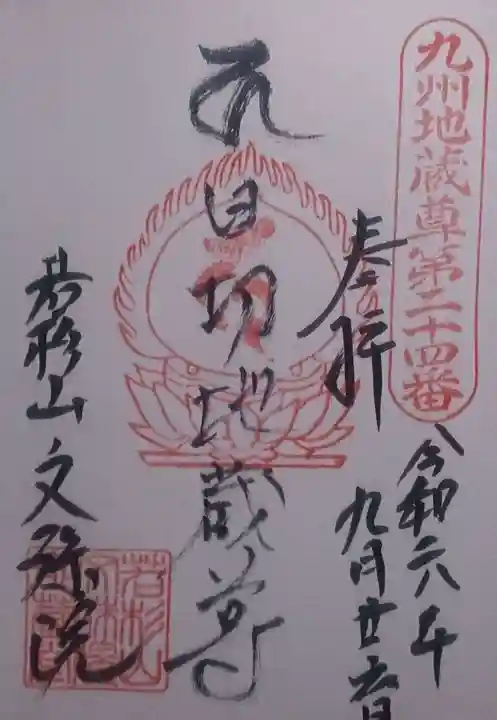 九州地蔵尊第二十四番
奉拝
令和六年
九月廿六日
日切地蔵尊
若杉山文殊院